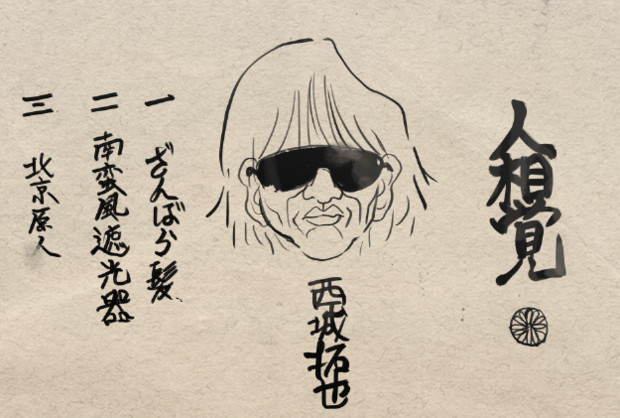 人相覚
西城拓也
一 ざんばら髪
二 南蛮風遮光器
三 北京原人